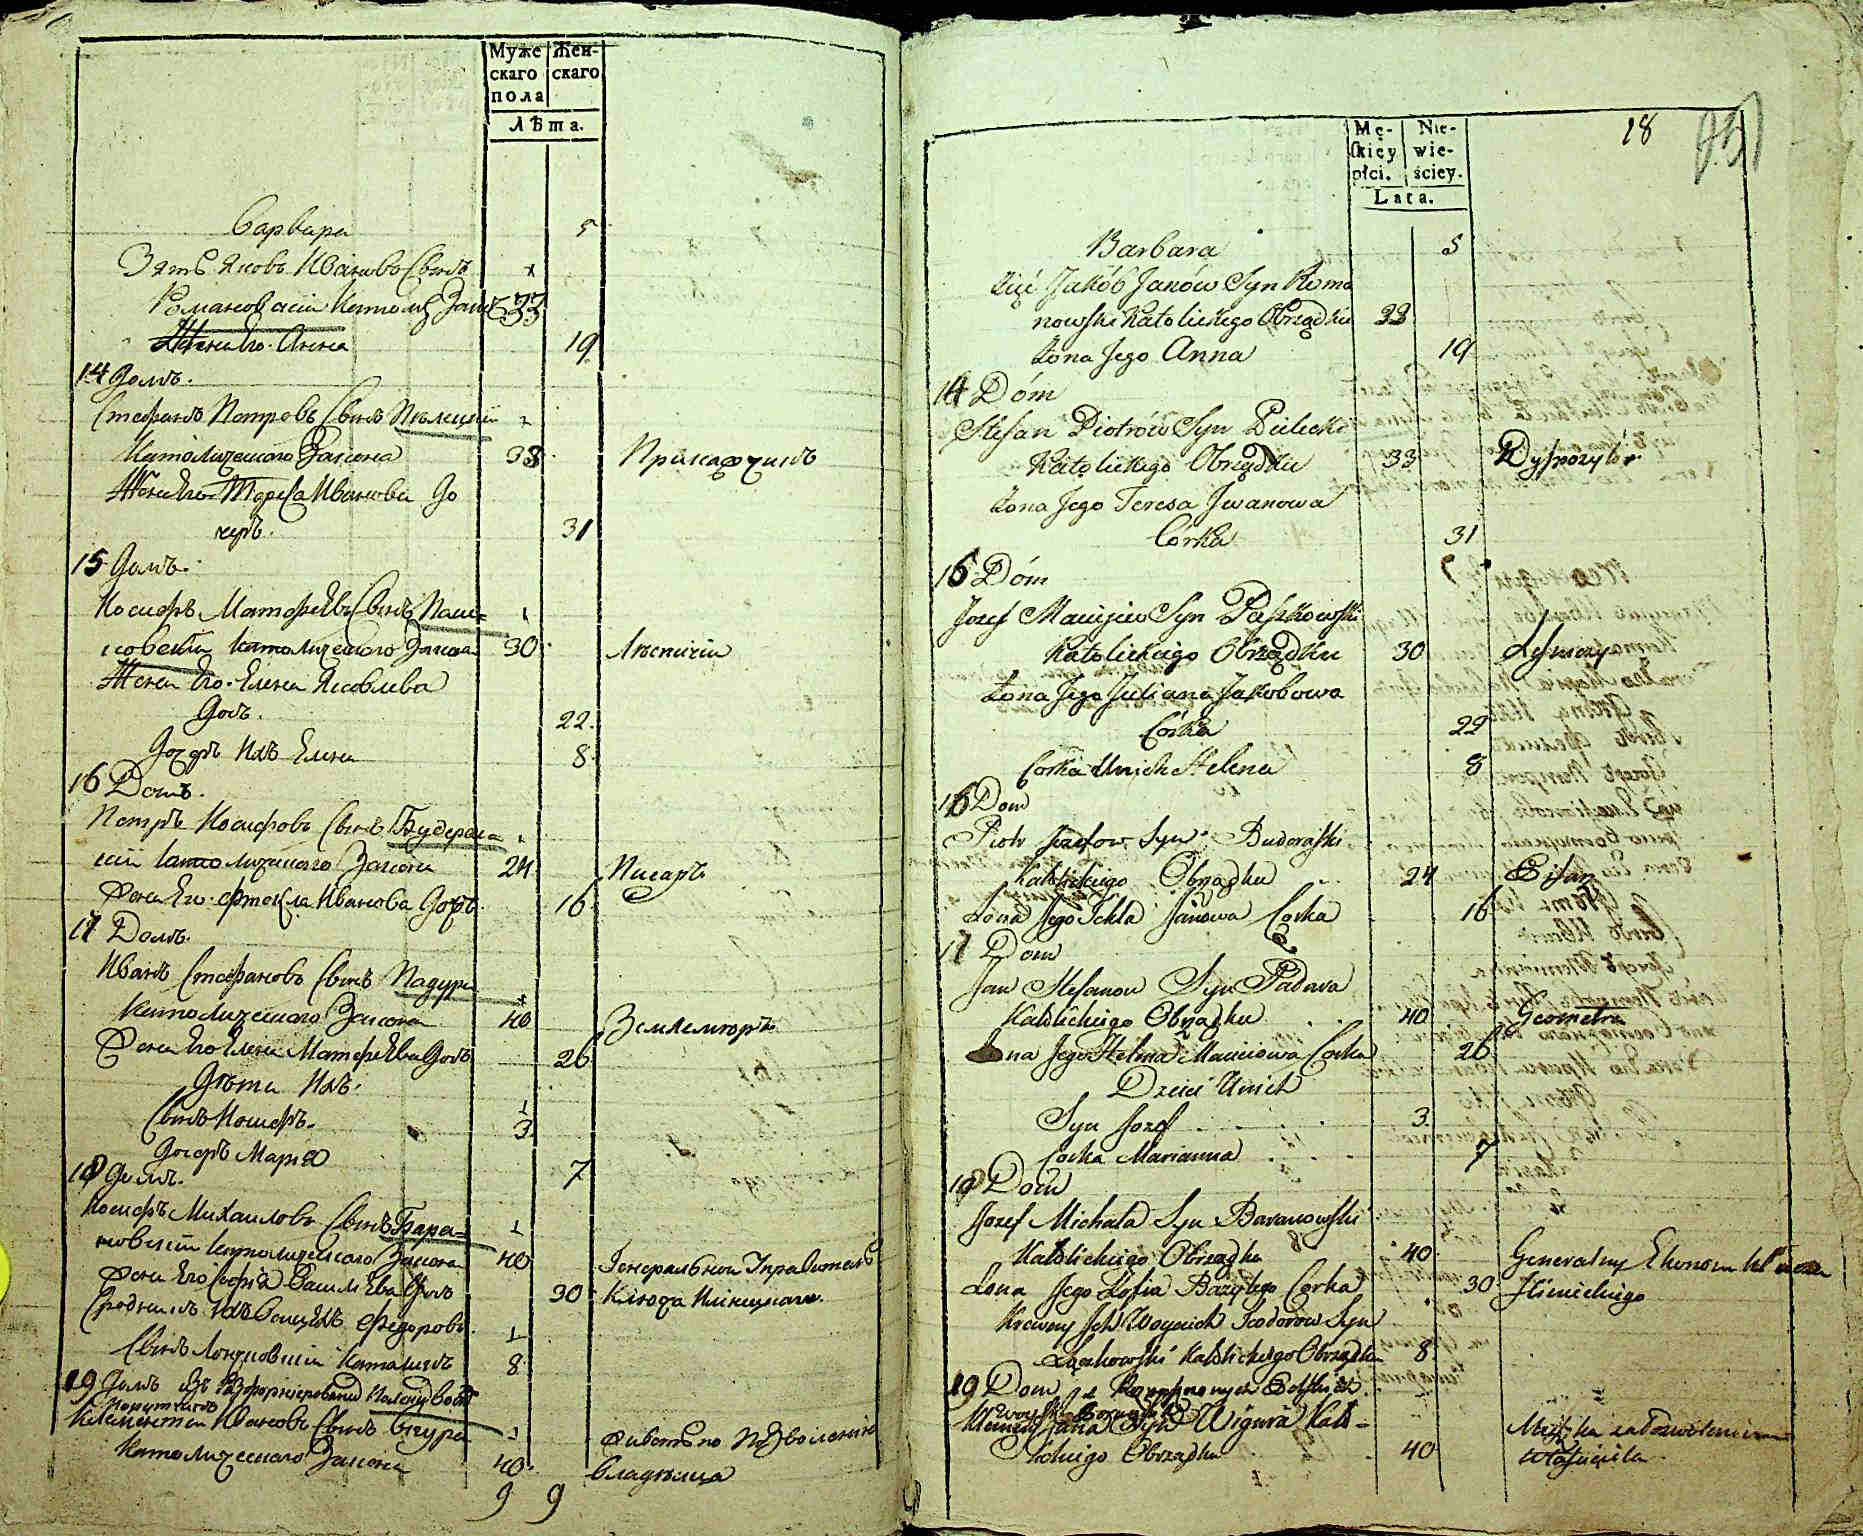 Муже Жен-
скаго скаго
пола
Лѣта.
Варвара 5
Зять Яковъ Ивановъ Сынъ
Романовскій Католиц Закон 33
Жена Его Анна 19
14 Домъ.
Стефанъ Петровъ Сынъ Пѣлецкій
Католическаго Закона 33 Прикащикъ
Жена Его Тереса Иванова До
черь. 31
15 Домъ.
Иосифъ Матфеевъ Сынъ Паш=
ковскій Католическаго Закона 30 Лѣсничій
Жена Его Елена Яковлева
Доч. 22.
Дочерь Ихъ Елена 8
16 Домъ.
Петръ Иосифовъ Сынъ Будера
скій Католическаго Закона 24 Писарь
Жена Его Фтекла Иванова Дочь 16
17 Домъ.
Иванъ Стефановъ Сынъ Падура
Католическаго Закона 40 Землемѣръ
Жена Его Елена Матфеева Дочь 26
Дѣти Ихъ.
Сынъ Иосифъ. 3
Дочерь Марія 7
18 Домъ.
Иосифъ Михаиловъ Сынъ Бара=
новскій Католическаго Закона 40 Генеральной Управитель
Жена Его Софія Василіева Дочь 30 Ключа Илинецкаго.
Сродникъ Ихъ Войцехъ Федоровъ
Сынъ Лончковскій Католикъ 8
19 Домъ
Климентій Ивановъ Сынъ Вигура Живетъ по Позволенію
Католическаго Закона 40 Владѣльца
9 9
18
Mę- Nie-
skiey wie-
płci. ściey.
Lata.
Barbara 5
Zięć Jakób Janów Syn Roma
nowski Katolickiego Obrządku 33
Żona Jego Anna 19
14 Dóm
Stefan Piotrów Syn Pielecki
Katolickiego Obrządku 33 Dyspozytór
Żona Jego Teresa Jwanowa
Córka 31
15 Dóm
Jozef Maciejew Syn Paszkowski
Katolickiego Obrządku 30 Leśniczy
Żona Jego Juliana Jakobowa
Córka 22
Corka Unich Helena 8
16 Dom
Piotr Jozefow Syn Buderaski
Katolickiego Obrządku 24 Pisarz
Żona Jego Tekla Janowa Corka 16
17 Dom
Jan Stefanow Syn Padura
Katolickiego Obrządku 40 Geometra
Żona Jego Helena Maciiowa Corka 26
Dzieci Unich
Syn Jozef 3
Corka Marianna 7
18 Dom
Jozef Michała Syn Baranowski
Katolickiego Obrządku 40 Generalny Ekonom Klucza
Żona Jego Zofia Bazylego Corka 30 Jlinickiego
Krewny Jch Woyciech Teodorow Syn
Łączkowski Katolickiego Obrządku 8
19 Dom
Klemens Jana Syn Wigura Kato-
lickiego Obrządku 40 Mieszka za Dozwoleniem
Właściciela